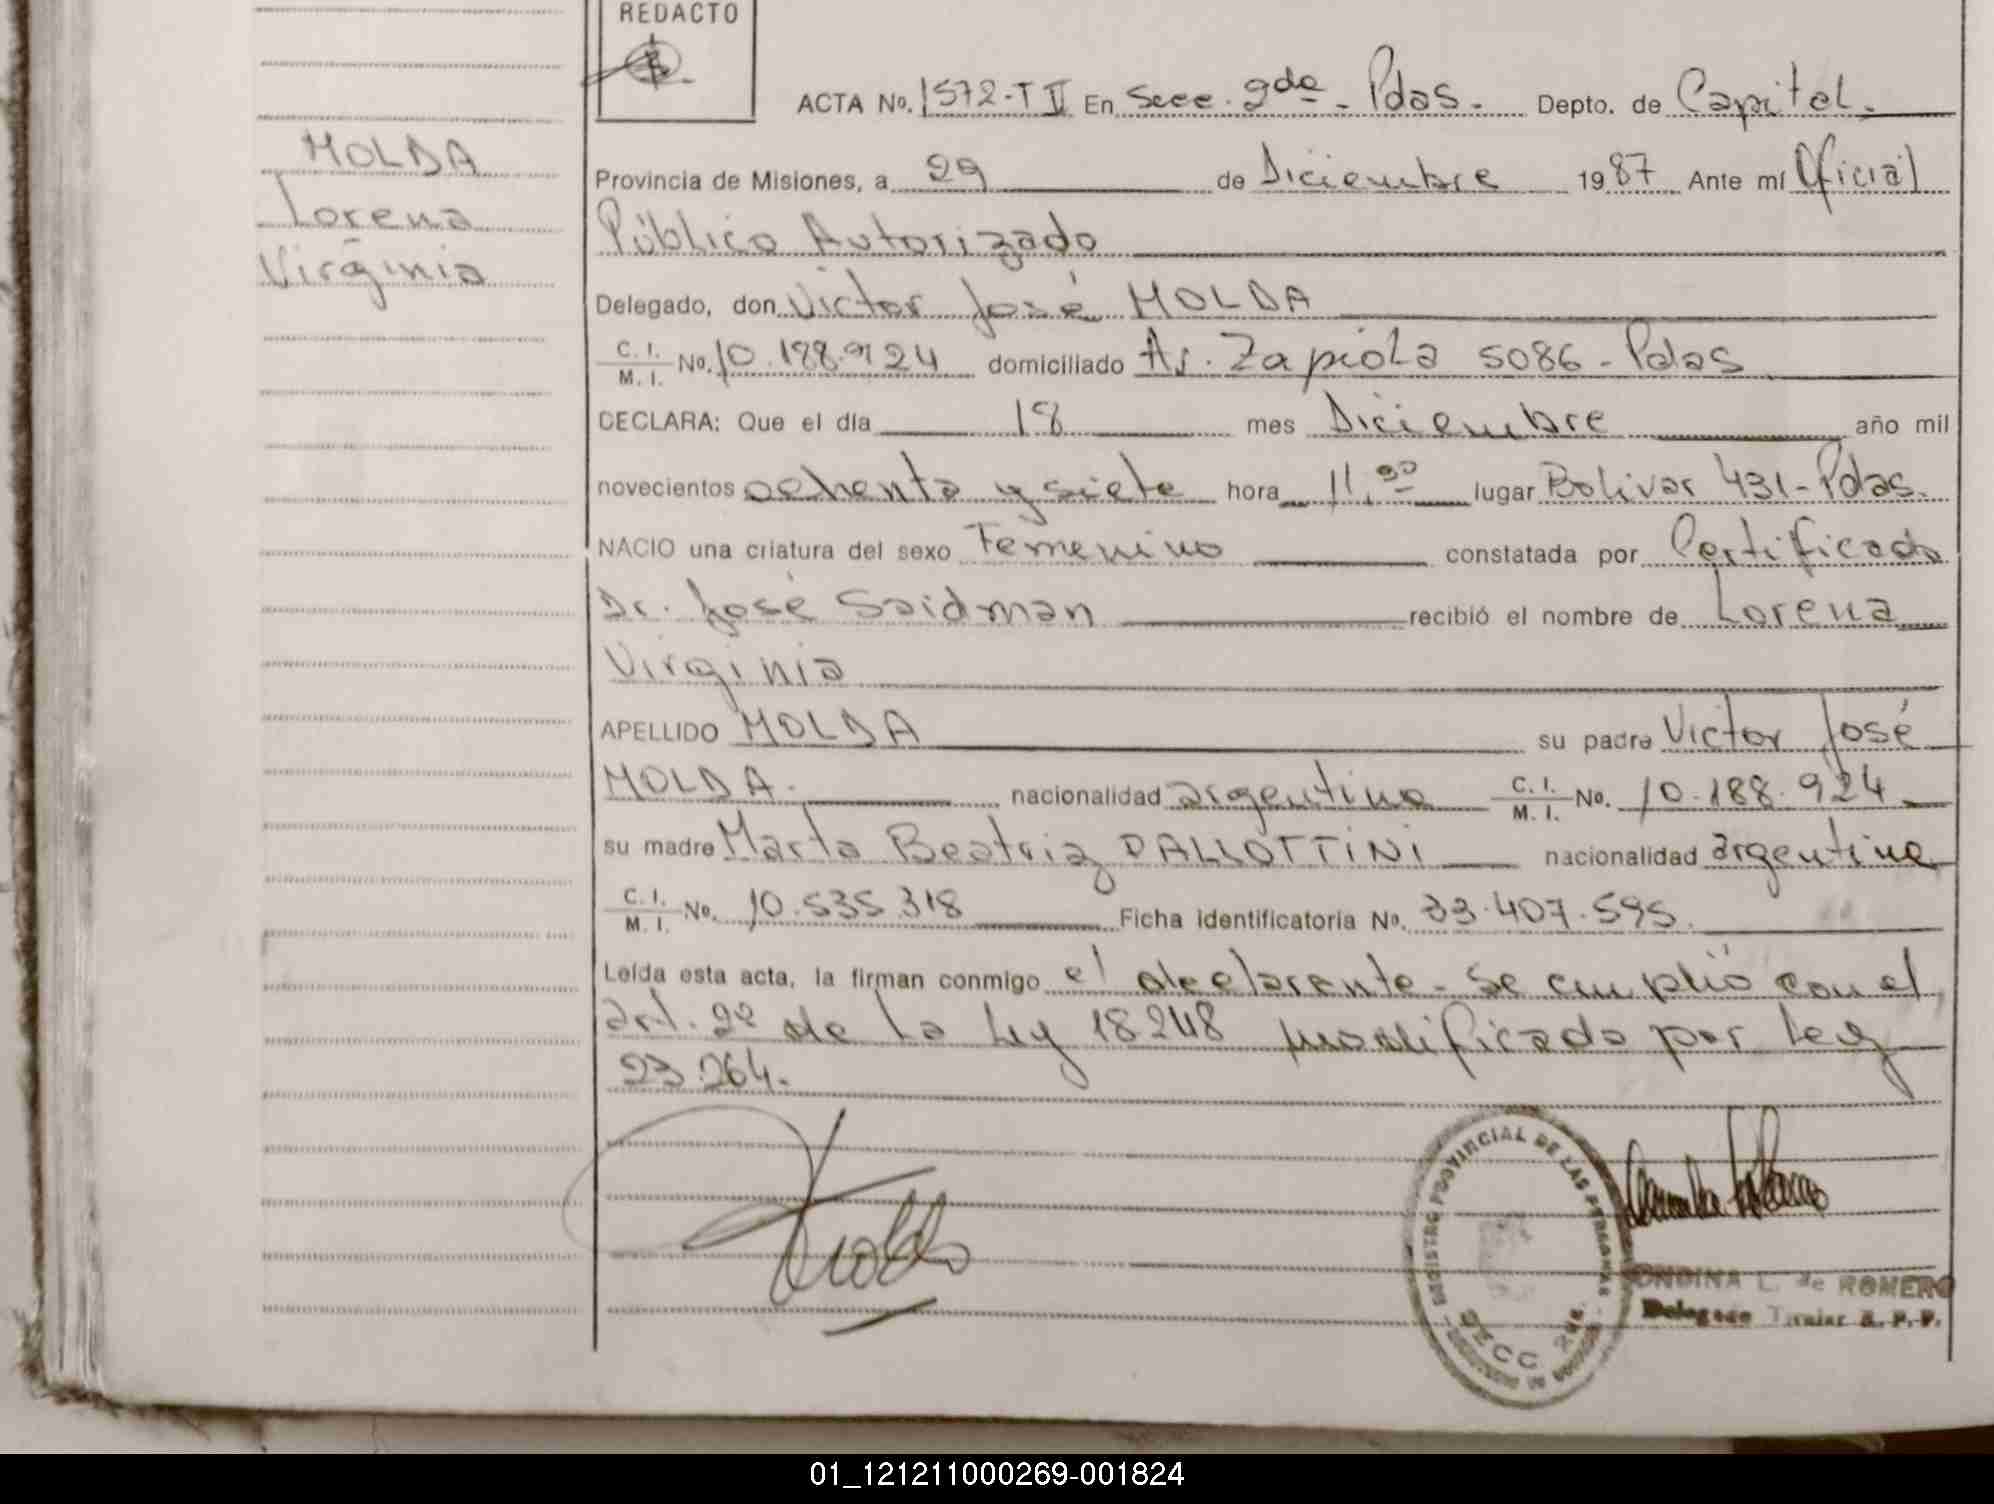 REDACTO
ACTA No. 1572-T II En Secc. 2da - Pdas. Depto. de Capital.
MOLDA
Lorena
Virginia
Provincia de Misiones, a 29 de Diciembre 1987 Ante mí Oficial
Público Autorizado
Delegado, don Victor José MOLDA
C. I. M. I. No. 10.188.924 domiciliado Av. Zapiola 5086 - Pdas
DECLARA: Que el día 18 mes Diciembre año mil
novecientos ochenta y siete hora 11.30 lugar Bolivar 431 - Pdas.
NACIO una criatura del sexo Femenino constatada por Certificado
Dr. José Saidman recibió el nombre de Lorena
Virginia
APELLIDO MOLDA su padre Victor José
MOLDA. nacionalidad argentino C. I. M. I. No. 10.188.924
su madre Marta Beatriz DALLOTTINI nacionalidad argentina
C. I. M. I. No. 10.535.318 Ficha identificatoria No. 33.407.595.
Leída esta acta, la firman conmigo el declarante - Se cumplió con el
art. 2º de la Ley 18248 modificado por Ley
23.264.
REGISTRO PROVINCIAL DE LAS PERSONAS
SECC 2da.
ONDINA L. de ROMERO
Delegado Titular R. P. P.
01_121211000269-001824